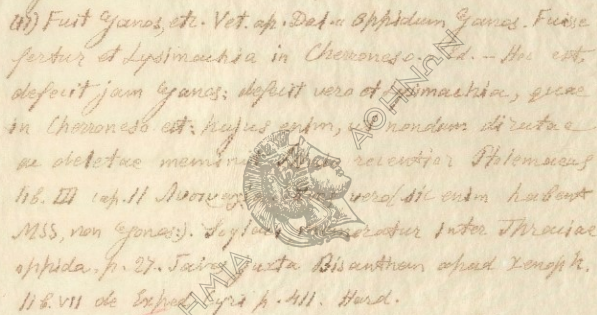 41) Fuit Ganos, etc. Vet. ap. Dal. - oppidum Ganos. Fuisse
fertur et Lysimachia in Cherroneso. Id. - Hoc est,
defecit jam Ganos: defecit vero et Lysimachia, quae
in Cherroneso est: hujus enim, ut nondum dirutae
ac deletae meminit Pliniο recentior Ptolemaeus
lib. III cap. 11 vero (sic enim habent
MSS, non Gonos:). memoratur inter Thraciae
oppida, p. 27. juxta Bisanthen apud Xenoph.
lib. VII de Exped. Cyri p. 411. Hard.
ΗΜΙΑ ΑΘΗΝΩΝ